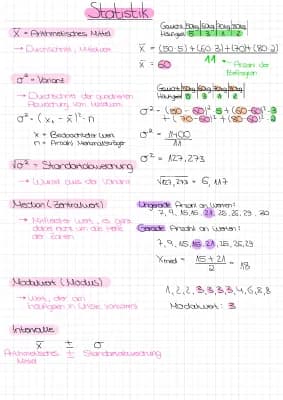 Statistik
x̄ = Arithmetisches Mittel
→ Durchschnitt, Mittelwert
Gewicht 50kg 60kg 70kg 80kg
Häufigkeit 5 3 1 2
x̄ = (50·5)+(60·3)+(70)+(80·2)
11 ← Anzahl der Befragten
x̄ = 60
σ² = Varianz
→ Durchschnitt der quadrierten
Abweichung vom Mittelwert
σ² = (x₁ - x̄)²·n
x = Beobachteter Wert
n = Anzahl Merkmalsträger
Gewicht 50kg 60kg 70kg 80kg
Häufigkeit 5 3 1 2
σ² = (50-60)²·5+(60-60)²·3
+(70-60)²+(80-60)²·2
σ² = 1400
11
σ² = 127,273
√σ² = Standardabweichung
→ Wurzel aus der Varianz
√127,273 = 6,117
Median (Zentralwert)
→ Mittlerster Wert, es geht
dabei nicht um die Höhe
der Zahlen
Ungerade Anzahl an Werten:
7, 9, 15, 15, 21, 25, 25, 29, 30
Gerade Anzahl an Werten:
7, 9, 15, 15, 21, 25, 25, 29
Xmed = 15 + 21
2 = 18
Modalwert (Modus)
→ Wert, der am
häufigsten in Urliste vorkommt
1, 2, 2, 3, 3, 3, 3, 4, 6, 8, 8
Modalwert: 3
Intervalle
x̄ ± σ
Arithmetisches ± Standardabweichung
Mittel